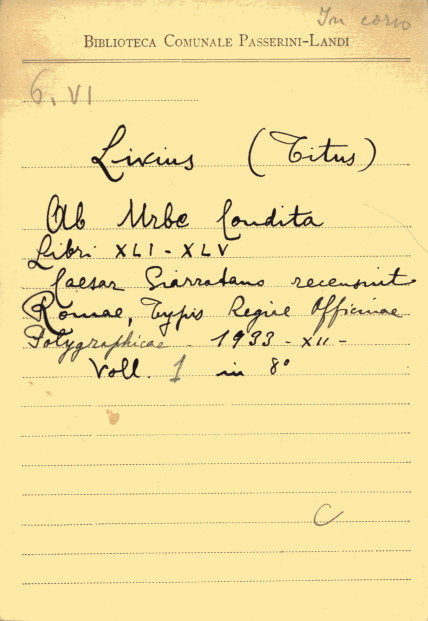 In corso
BIBLIOTECA COMUNALE PASSERINI-LANDI
6. VI
Livius (Titus)
Ab Urbe Condita
Libri XLI - XLV
Caesar Giarratano recensuit
Romae, Typis Regiae Officinae
Polygraphicae - 1933 - XII -
Voll. 1 in 8°
C